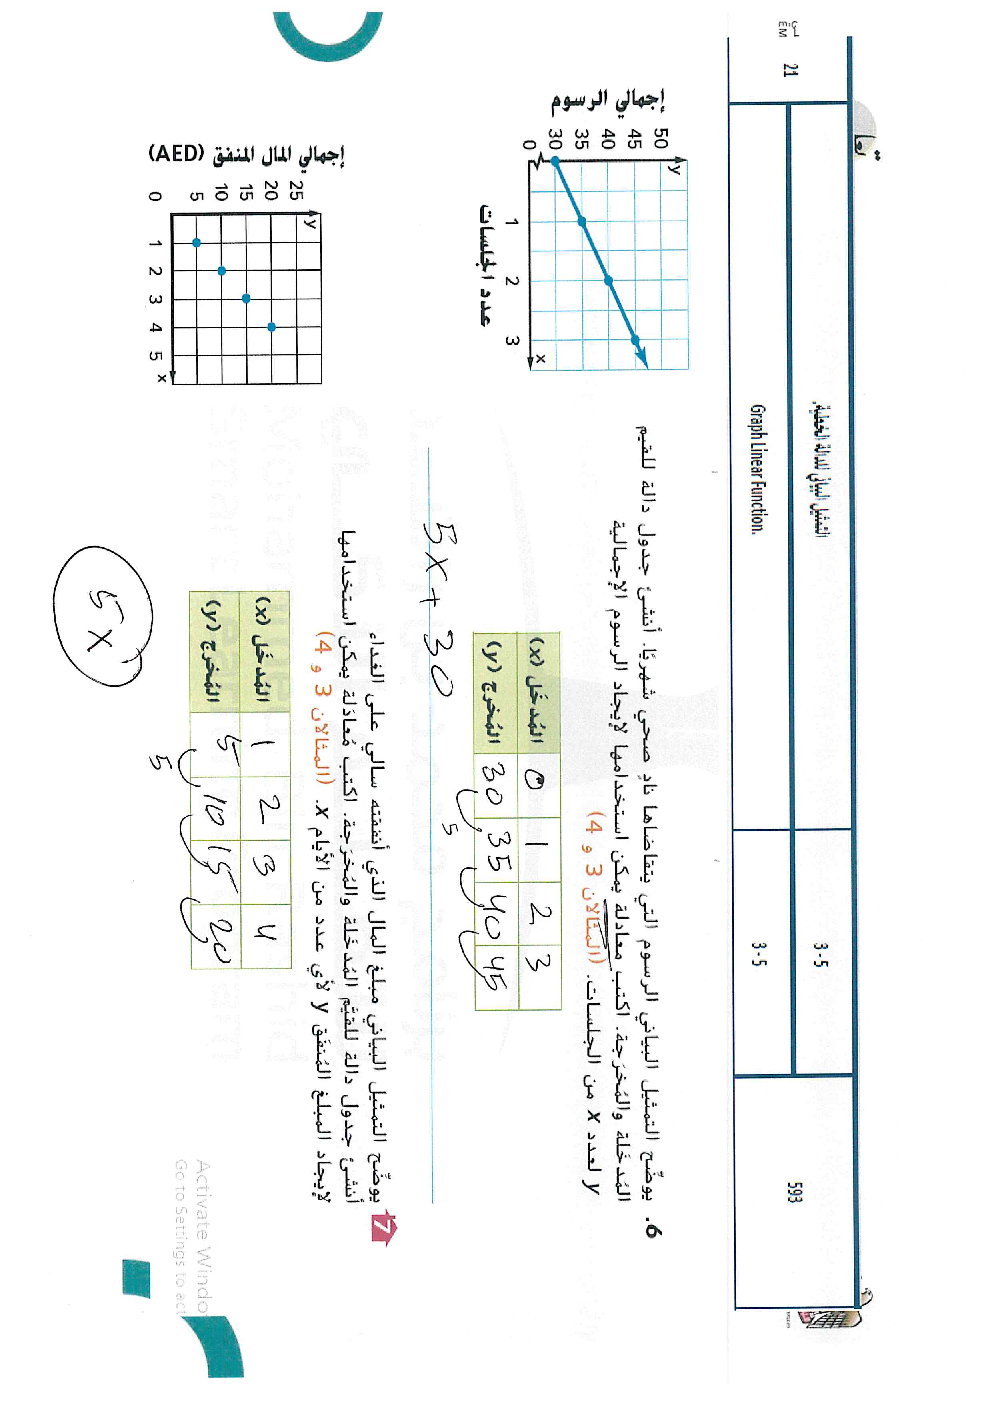 21
التمثيل البياني للدالة الخطية.
3-5
593
Graph Linear Function.
3-5
6. يوضّح التمثيل البياني الرسوم التي يتقاضاها نادٍ صحي شهريًا. أنشئ جدول دالة للقيم
المُدخَلة والمُخرَجة. اكتب معادلة يمكن استخدامها لإيجاد الرسوم الإجمالية
y لعدد x من الجلسات. (المثالان 3 و 4)
المُدخَل (x) 0 1 2 3
المُخرج (y) 30 35 40 45
5
5x + 30
إجمالي الرسوم
y
50
45
40
35
30
0
1 2 3 x
عدد الجلسات
7 يوضّح التمثيل البياني مبلغ المال الذي أنفقته سالي على الغداء
أنشئ جدول دالة للقيَم المُدخَلة والمُخرَجة. اكتب مُعادَلة يمكن استخدامها
لإيجاد المبلغ المُنفَق y لأي عدد من الأيام x. (المثالان 3 و 4)
المُدخَل (x) 1 2 3 4
المُخرج (y) 5 10 15 20
5
5x
إجمالي المال المنفق (AED)
y
25
20
15
10
5
0
1 2 3 4 5 x
Activate Windo
Go to Settings to act